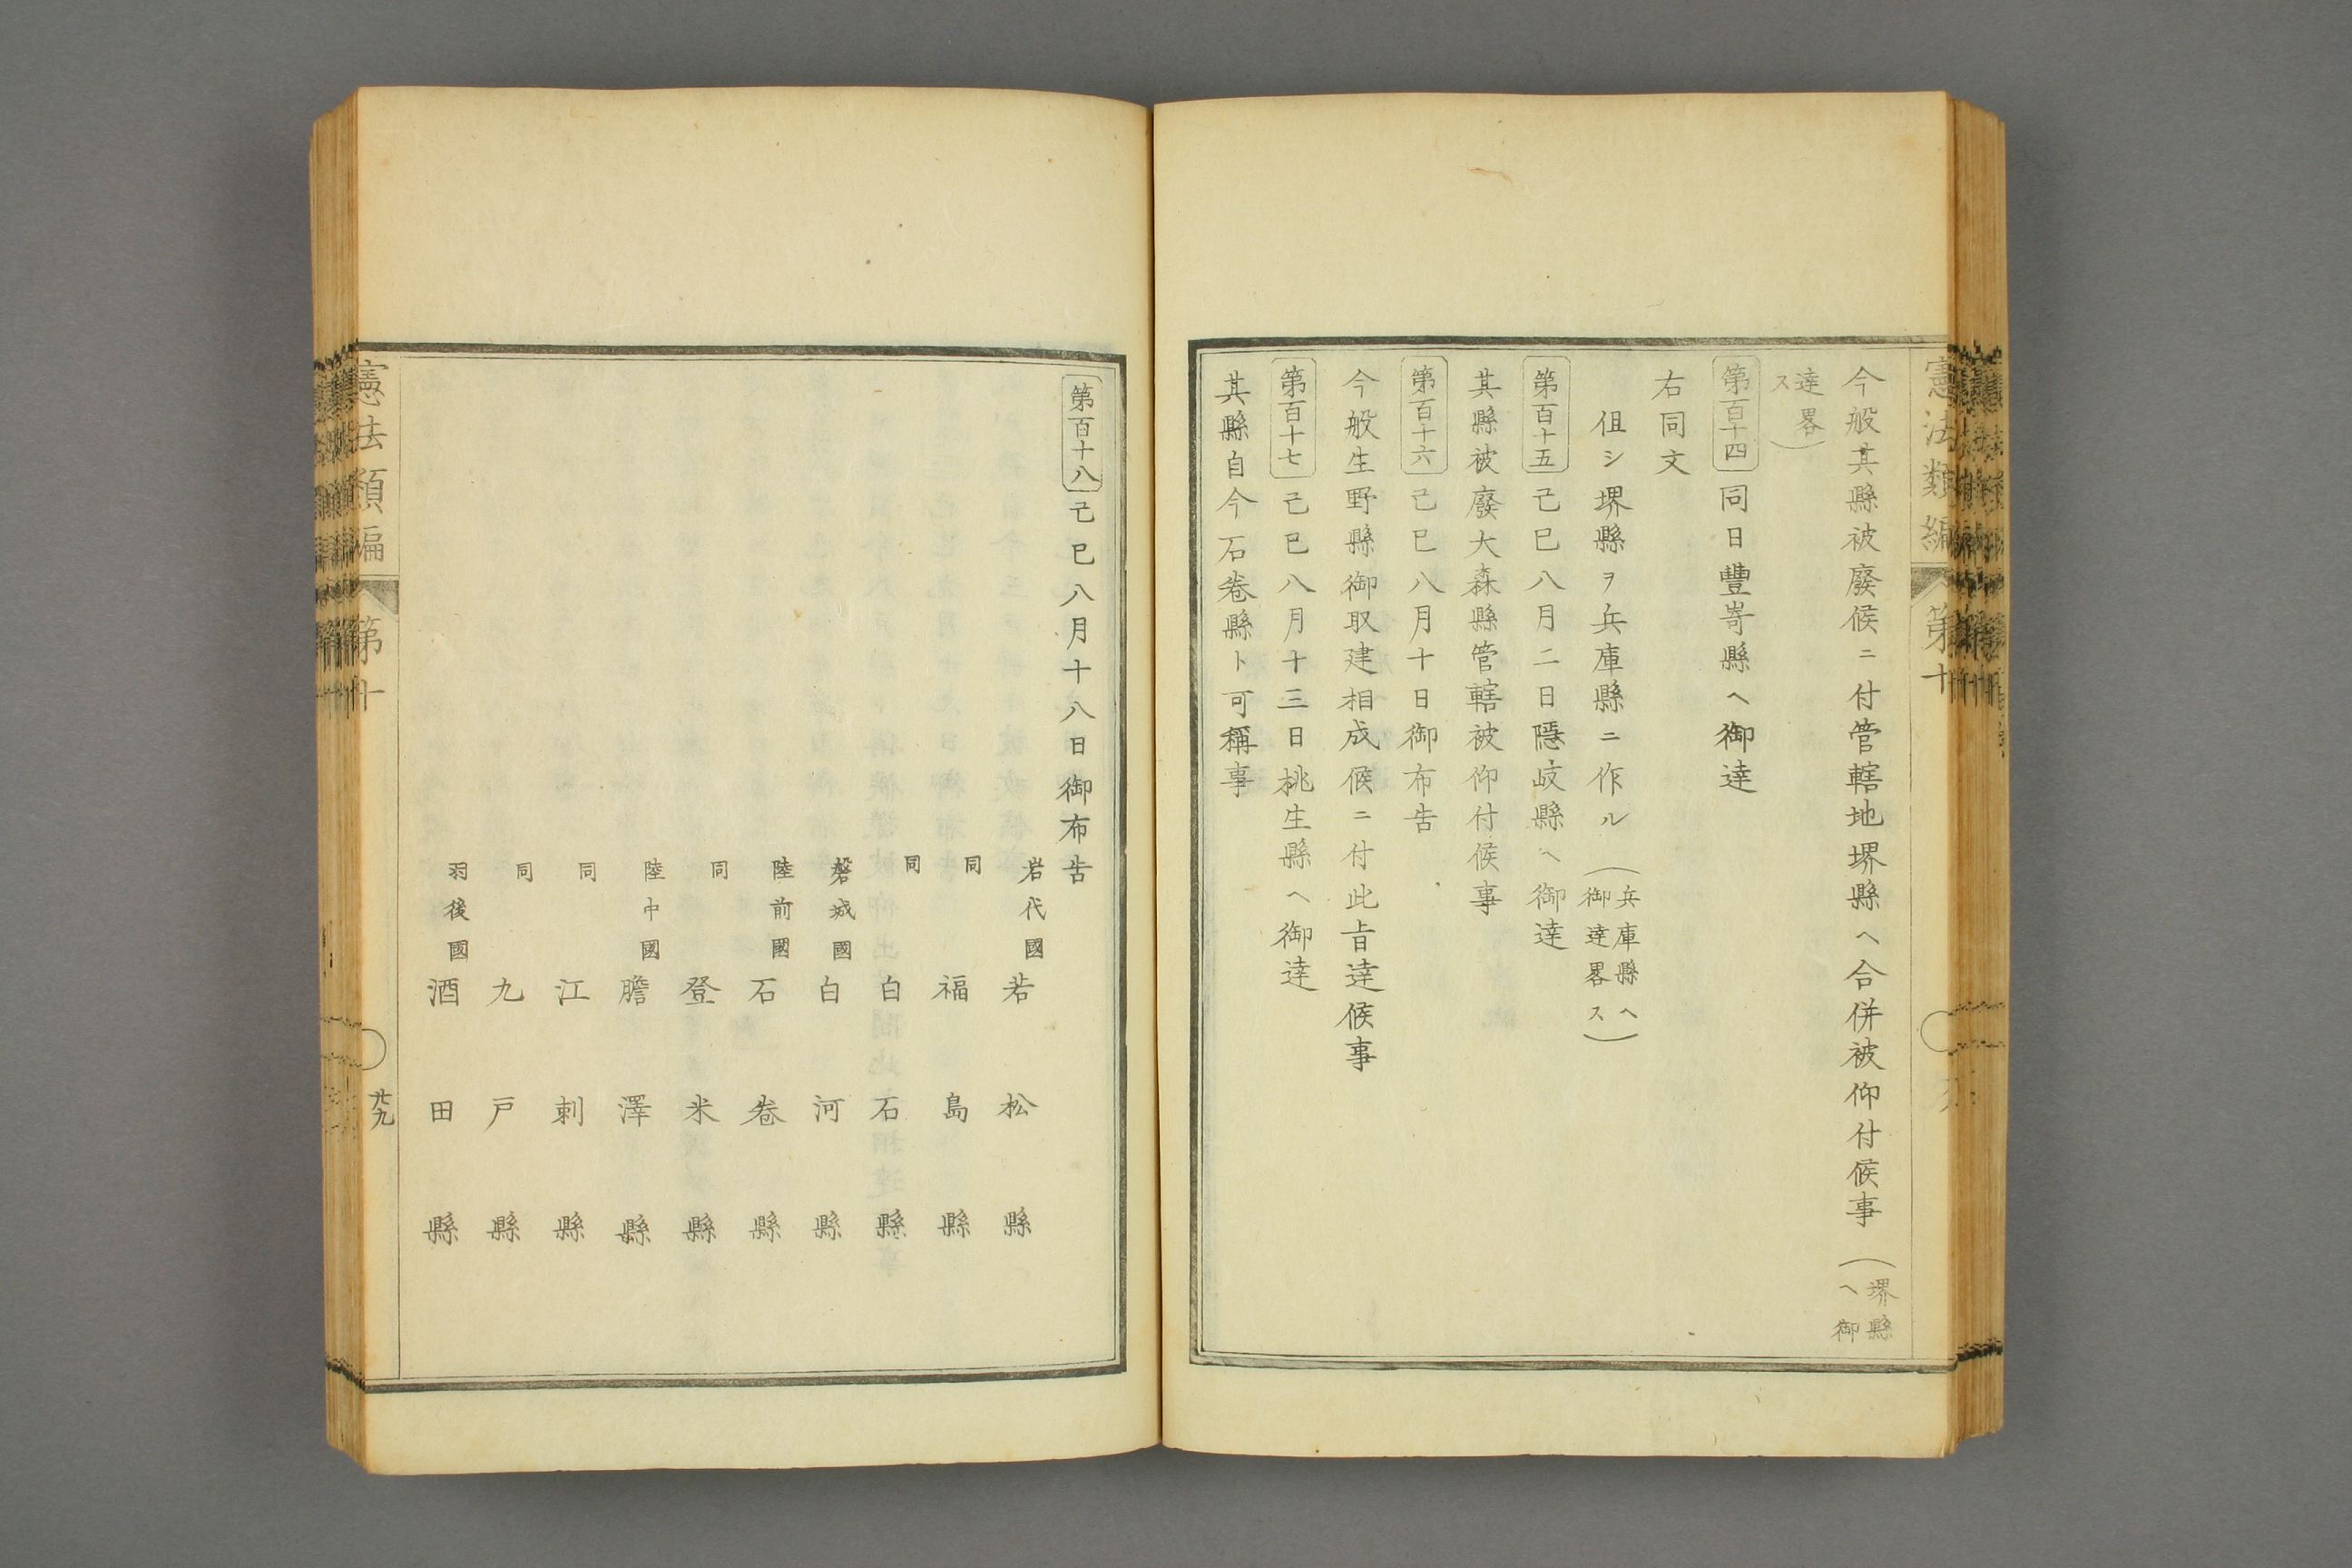 今般其縣被廢候ニ付管轄地堺縣ヘ合併被仰付候事（堺縣ヘ御
達畧ス）
第百十四 同日豐嵜縣ヘ御達
右同文
但シ堺縣ヲ兵庫縣ニ作ル（兵庫縣ヘ御達畧ス）
第百十五 己巳八月二日隱岐縣ヘ御達
其縣被廢大森縣管轄被仰付候事
第百十六 己巳八月十日御布告
今般生野縣御取建相成候ニ付此旨達候事
第百十七 己巳八月十三日桃生縣ヘ御達
其縣自今石卷縣ト可稱事
憲法類編 第十
第百十八 己巳八月十八日御布告
岩代國 若松縣
同 福島縣
同 白石縣
磐城國 白河縣
陸前國 石卷縣
同 登米縣
陸中國 膽澤縣
同 江刺縣
同 九戸縣
羽後國 酒田縣
憲法類編 第十
廿九